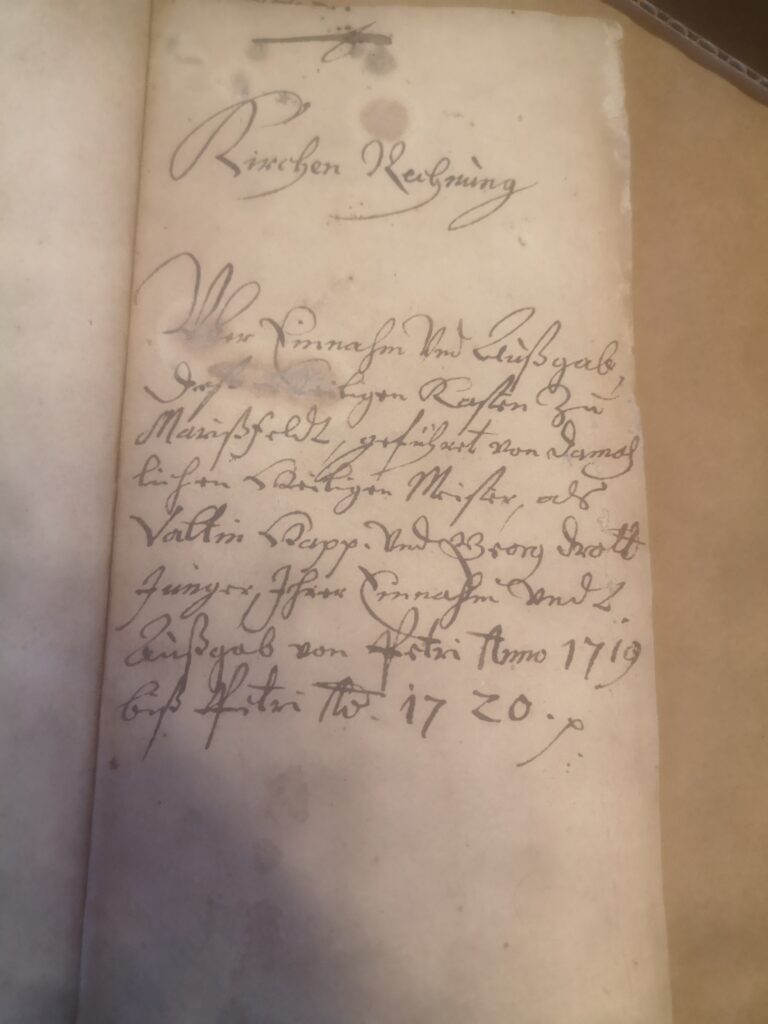 Kirchen Rechnung
Über Einnahm Und Außgab,
Deß Heiligen Kasten Zu
Marißfeldt, geführet von damah
lichen Heiligen Meister, als
Valtin Kapp. Und Georg Drott
Junger, Ihrer Einnahm undt
Außgab von Petri Anno 1719
biß Petri Ao. 1720.